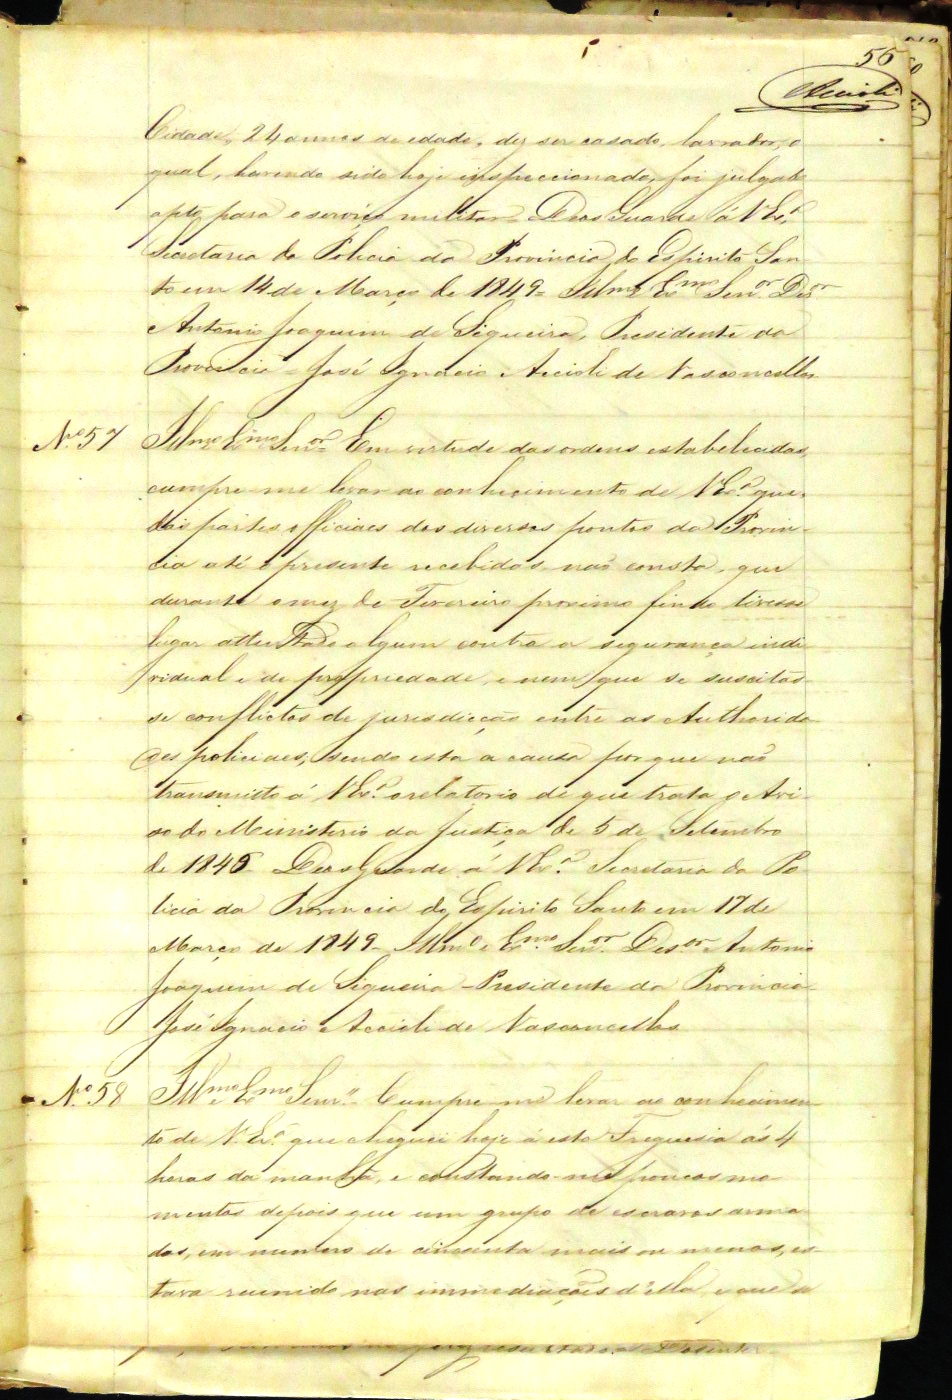 55
Accioli
Cidade, 24 annos de edade, diz ser casado, lavrador, o
qual, havendo sido hoje inspeccionado, foi julgado
apto para o serviço militar. Deos Guarde á V Ex.ª
Secretaria da Policia da Provincia do Espirito San
to em 14 de Março de 1849 - Illmo Exmo Senor Desor
Antonio Joaquim de Siqueira, Presidente da
Provincia - José Ignacio Accioli de Vasconcellos
N.º 57 Illmo Exmo Senor - Em virtude das ordens estabelecidas,
cumpre-me levar ao conhecimento de V Ex.ª que,
das partes officiaes dos diversos pontos da Provin-
cia até o presente recebidas, não consta, que
durante o mez de Fevereiro proximo findo tivesse
lugar attentado algum contra a segurança indi
vidual e de propriedade, e nem que se suscitas-
se conflictos de jurisdicção entre as Authorida
des policiaes; sendo esta a causa porque não
transmitto á V Ex.ª o relatorio de que trata o Avi-
so do Ministerio da Justiça de 5 de Setembro
de 1846 Deos Guarde á V Ex.ª Secretaria da Po
licia da Provincia do Espirito Santo em 17 de
Março de 1849 - Illmo e Exmo Senor Desor Antonio
Joaquim de Siqueira - Presidente da Provincia
José Ignacio Accioli de Vasconcellos
N.º 58 Illmo e Exmo Senr.or Cumpre-me levar ao conhecimen-
to de V. Ex.ª que cheguei hoje á esta Freguesia ás 4
horas da manhã, e constando-me poucos mo-
mentos depois que um grupo de escravos arma
dos, em numero de cincoenta mais ou menos, es-
tava reunido nas immediações d'ella, e que a